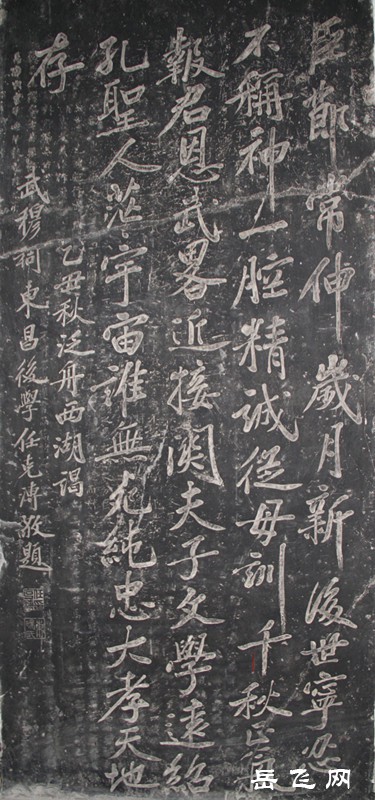 臣節常伸歲月新後世寧忍
不稱神一腔精誠從母訓千秋正氣
報君恩武畧近接関夫子文學遠紹
孔聖人茫〻宇宙誰無死純忠大孝天地
存
乙丑秋泛舟西湖謁
武穆祠東昌後學任克溥敬題
岳飞网